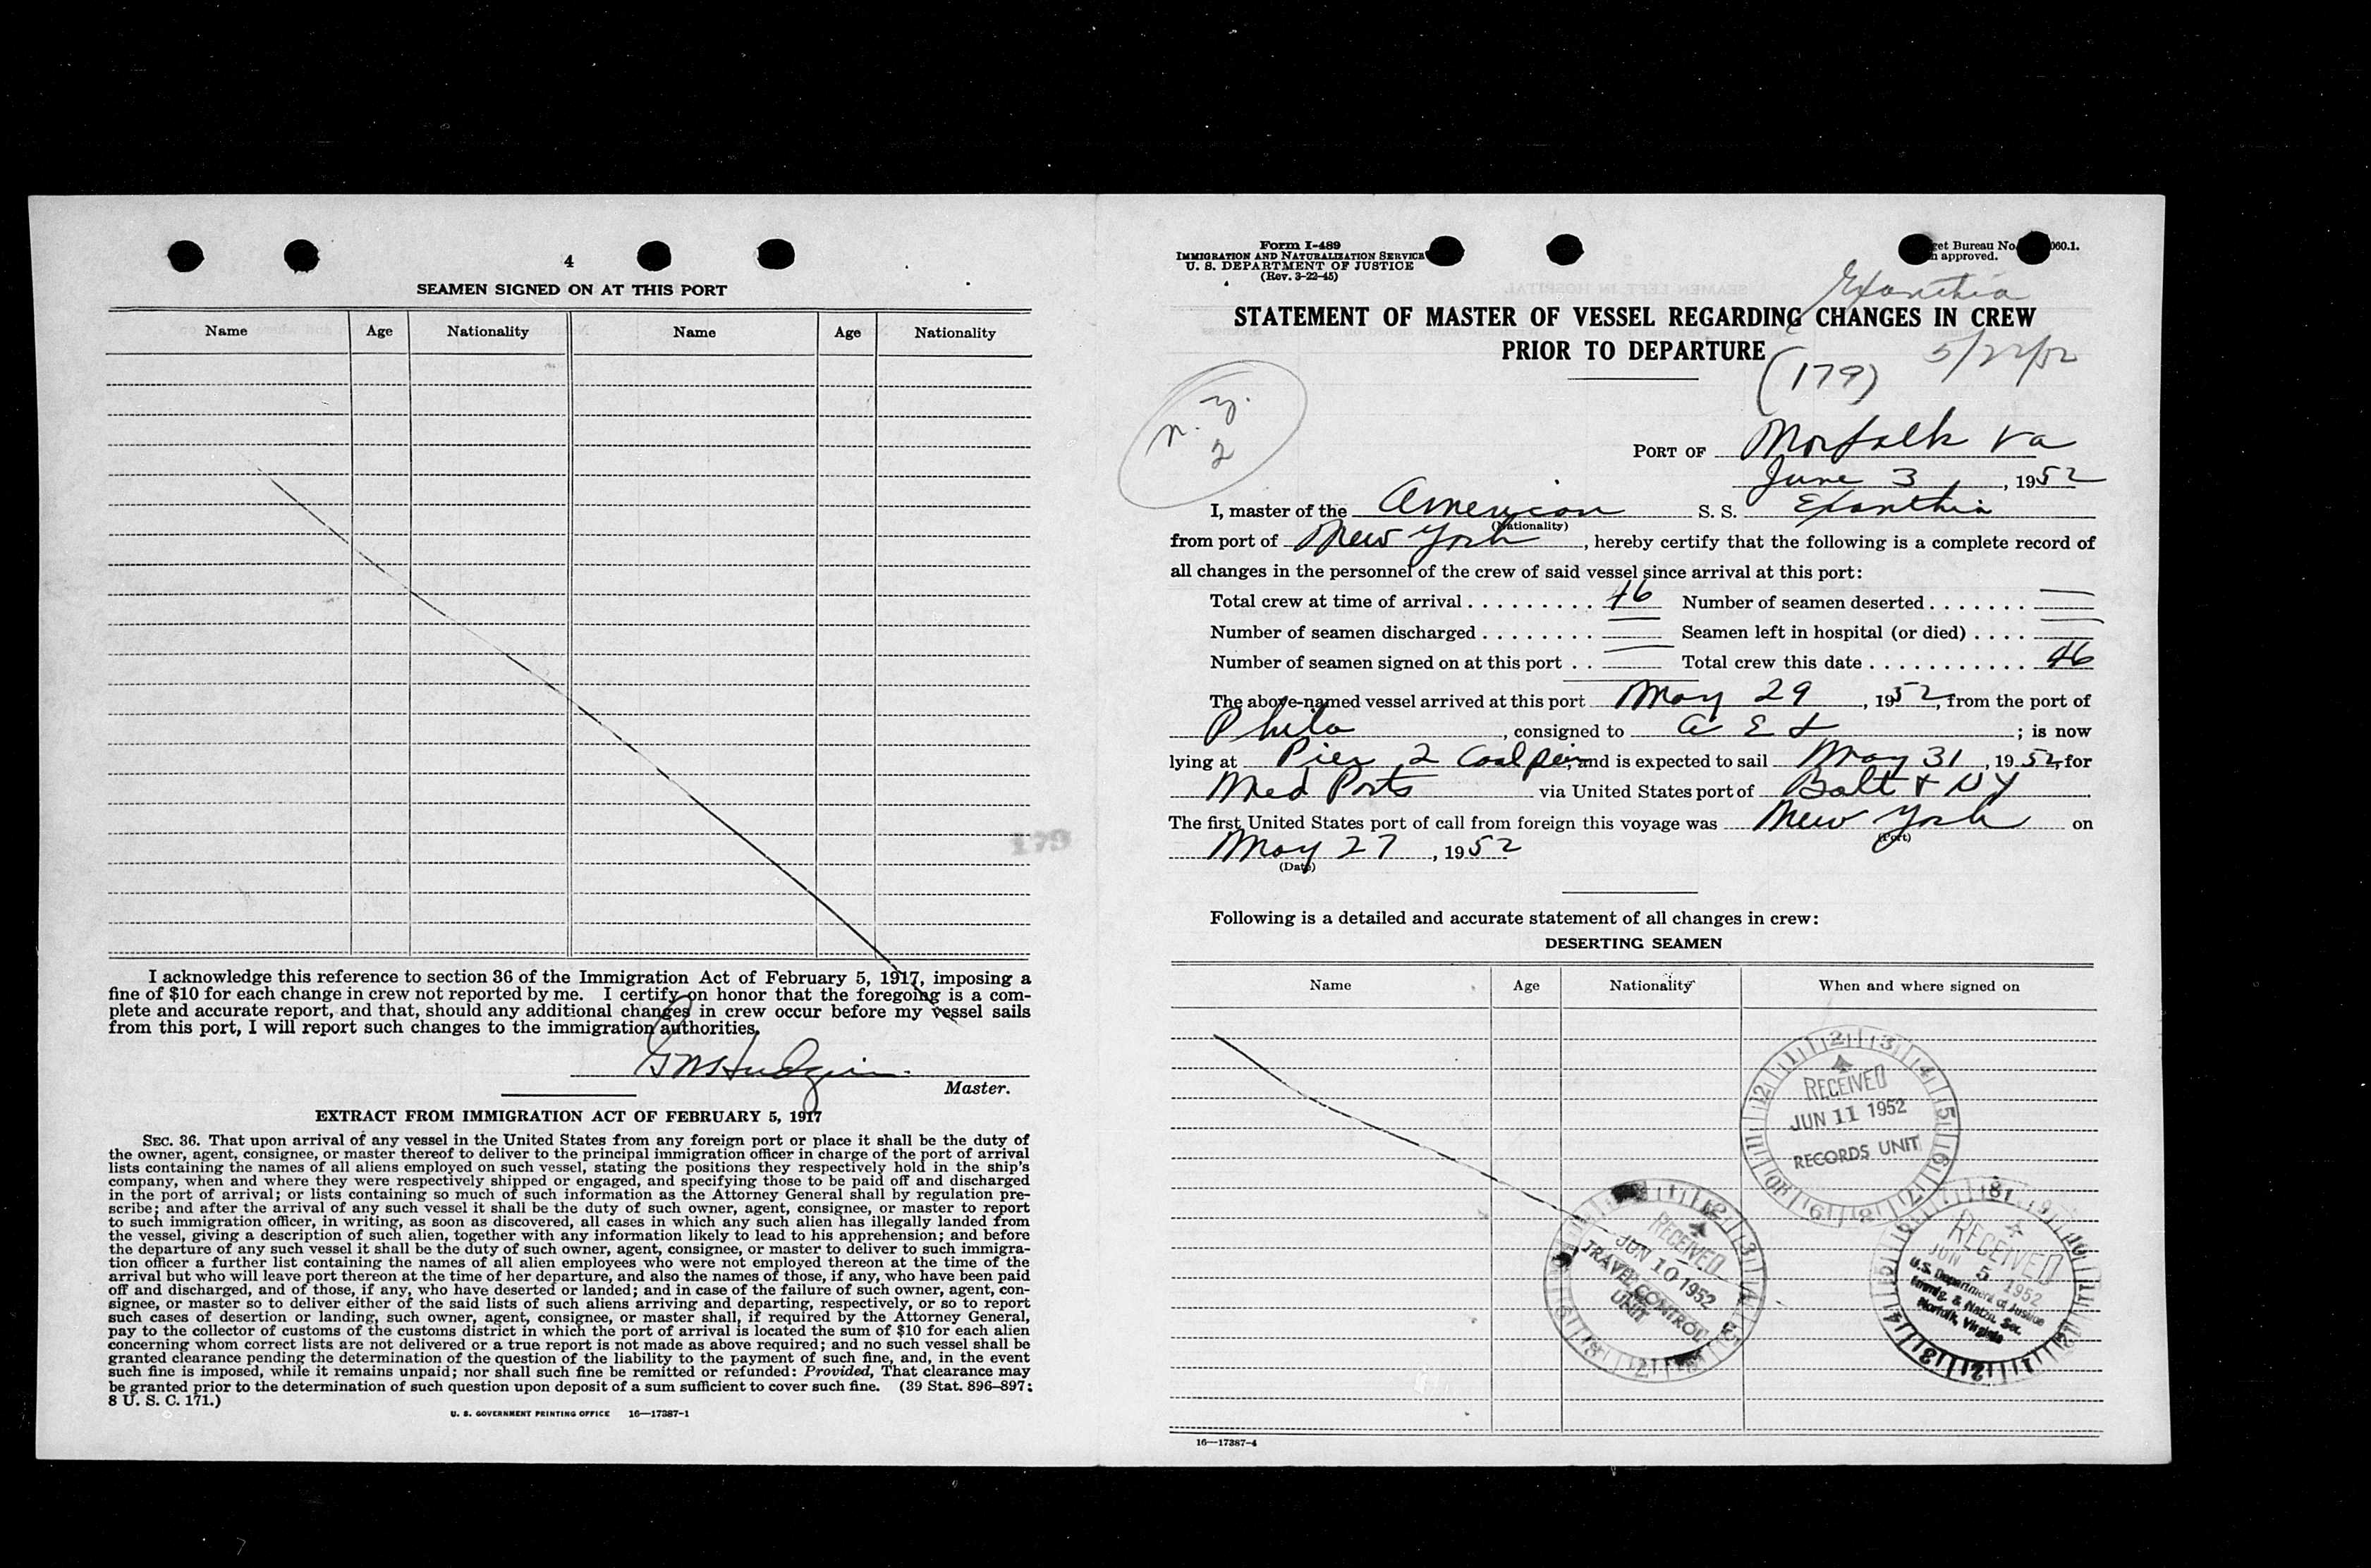 4
SEAMEN SIGNED ON AT THIS PORT
Name Age Nationality Name Age Nationality
179
I acknowledge this reference to section 36 of the Immigration Act of February 5, 1917, imposing a
fine of $10 for each change in crew not reported by me. I certify on honor that the foregoing is a com-
plete and accurate report, and that, should any additional changes in crew occur before my vessel sails
from this port, I will report such changes to the immigration authorities.
Master.
EXTRACT FROM IMMIGRATION ACT OF FEBRUARY 5, 1917
SEC. 36. That upon arrival of any vessel in the United States from any foreign port or place it shall be the duty of
the owner, agent, consignee, or master thereof to deliver to the principal immigration officer in charge of the port of arrival
lists containing the names of all aliens employed on such vessel, stating the positions they respectively hold in the ship's
company, when and where they were respectively shipped or engaged, and specifying those to be paid off and discharged
in the port of arrival; or lists containing so much of such information as the Attorney General shall by regulation pre-
scribe; and after the arrival of any such vessel it shall be the duty of such owner, agent, consignee, or master to report
to such immigration officer, in writing, as soon as discovered, all cases in which any such alien has illegally landed from
the vessel, giving a description of such alien, together with any information likely to lead to his apprehension; and before
the departure of any such vessel it shall be the duty of such owner, agent, consignee, or master to deliver to such immigra-
tion officer a further list containing the names of all alien employees who were not employed thereon at the time of the
arrival but who will leave port thereon at the time of her departure, and also the names of those, if any, who have been paid
off and discharged, and of those, if any, who have deserted or landed; and in case of the failure of such owner, agent, con-
signee, or master so to deliver either of the said lists of such aliens arriving and departing, respectively, or so to report
such cases of desertion or landing, such owner, agent, consignee, or master shall, if required by the Attorney General,
pay to the collector of customs of the customs district in which the port of arrival is located the sum of $10 for each alien
concerning whom correct lists are not delivered or a true report is not made as above required; and no such vessel shall be
granted clearance pending the determination of the question of the liability to the payment of such fine, and, in the event
such fine is imposed, while it remains unpaid; nor shall such fine be remitted or refunded: Provided, That clearance may
be granted prior to the determination of such question upon deposit of a sum sufficient to cover such fine. (39 Stat. 896–897;
8 U. S. C. 171.)
U. S. GOVERNMENT PRINTING OFFICE 16—17387-1
Form I-489
IMMIGRATION AND NATURALIZATION SERVICE
U. S. DEPARTMENT OF JUSTICE
(Rev. 3-22-45)
get Bureau No. 060.1.
approved.
Exanthia
STATEMENT OF MASTER OF VESSEL REGARDING CHANGES IN CREW
PRIOR TO DEPARTURE
5/22/52
(179)
n. y.
2
PORT OF Norfolk Va
June 3, 1952
I, master of the American S. S. Exanthia
(Nationality)
from port of New York, hereby certify that the following is a complete record of
all changes in the personnel of the crew of said vessel since arrival at this port:
Total crew at time of arrival . . . . . . . . . 46 Number of seamen deserted . . . . . . . —
Number of seamen discharged . . . . . . . . — Seamen left in hospital (or died) . . . . —
Number of seamen signed on at this port . . — Total crew this date . . . . . . . . . . . 46
The above-named vessel arrived at this port May 29, 1952, from the port of
Phila, consigned to A E L; is now
lying at Pier 2 Coal pier, and is expected to sail May 31, 1952, for
Med Ports via United States port of Balt & NY
The first United States port of call from foreign this voyage was New York on
(Port)
May 27, 1952
(Date)
Following is a detailed and accurate statement of all changes in crew:
DESERTING SEAMEN
Name Age Nationality When and where signed on
RECEIVED
JUN 11 1952
RECORDS UNIT
RECEIVED
JUN 10 1952
TRAVEL CONTROL
UNIT
RECEIVED
JUN 5 1952
U.S. Department of Justice
Immig. & Natzn. Ser.
Norfolk, Virginia
16—17387-4